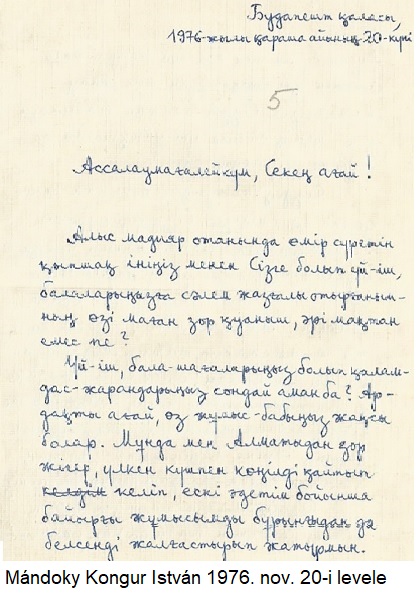 Будапешт қаласы,
1976-жылы қараша айының 20-күні
5
Ассалаумағалейкум, Секең ағай!
Алыс мадияр отанында өмір сүретін
қыпшақ ініңіз менен Сізге болып үй-іш,
балаларыңызға сәлем жазғалы отырғаным-
ның өзі маған зор қуаныш, әрі мақтан
емес пе?
Үй-іш, бала-шағаларыңыз болып қалам-
дас-жарандарыңыз сондай аман ба? Ар-
дақты ағай, өз жұмыс-бабыңыз жақсы
болар. Мұнда мен Алматыдан зор
жігер, үлкен күшпен көңілді қайтып
келдім келіп, ескі әдетім бойынша
байырғы жұмысымды бұрынғыдан да
белсенді жалғастырып жатырмын.
Mándoky Kongur István 1976. nov. 20-i levele